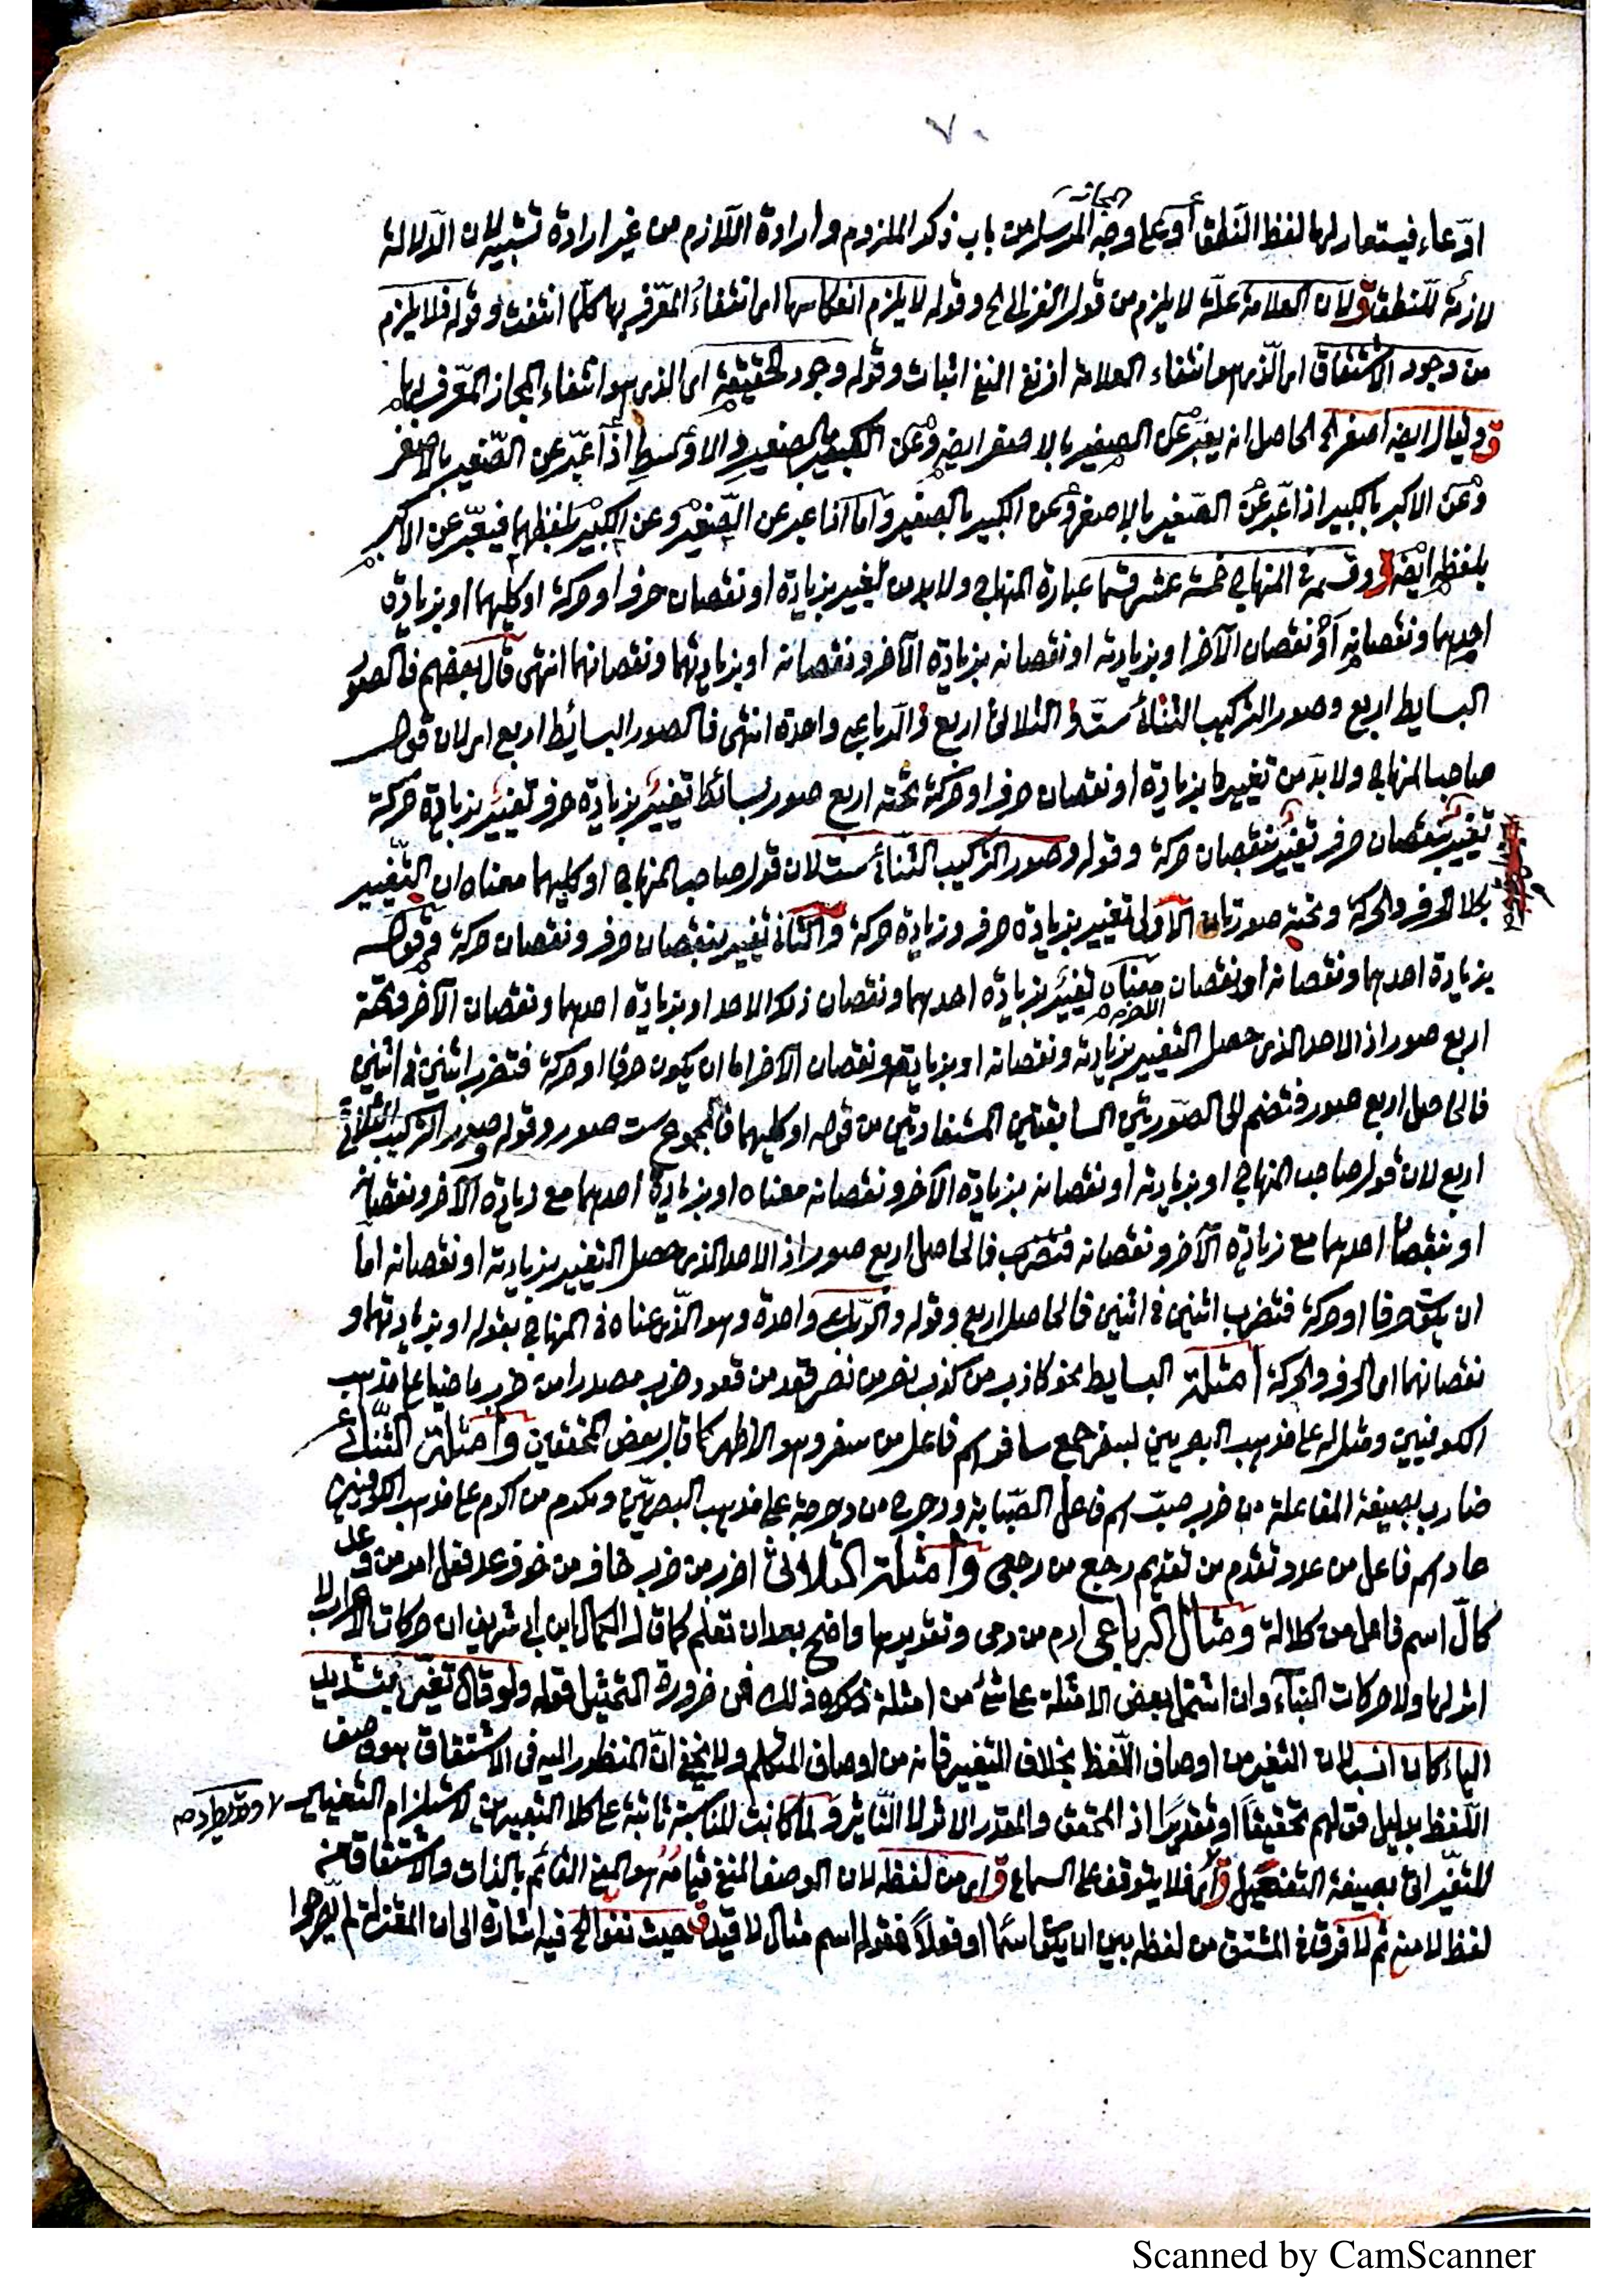 ٧٠
ادّعاء فيستعار لها لفظ النّطق أو على وجه المجاز المرسل من باب ذكر الملزوم وارادة اللّازم من غير ارادة تشبيه لان الدّلالة
لازمة للنطق ق ولان العلامة علّة لا يلزم من قول الغزالى الخ وقوله لا يلزم انعكاسها اى انتفاء المعرّف بها كلّما انتفت وقوله فلا يلزم
من وجود الاشتقاق اى الّذى هو انتفاء العلامة اذ نفى النفى اثبات وقوله وجود الحقيقة اى الذى هو انتفاء المجاز المعرّف بها
ق ويقال ايضا اصغر الخ الحاصل انه يعبّر عن الصغير بالاصغر ايضا وعن الكبير بالصغير والاوسط اذا عبّر عن الصّغير بالاصغر
وعن الاكبر بالكبير اذا عبّر عن الصّغير بالاصغر وعن الكبير بالصغير واما اذا عبر عن الصّغير وعن الكبير بلفظهما فيعبّر عن الاكبر
بلفظه ايضا ق وقسمه فى المنهاج خمسة عشر قسما عبارة المنهاج ولابد من تغيير بزيادة او نقصان حرف او حركة او كليهما او بزيادة
احدهما ونقصانه أو نقصان الآخر او بزيادته او نقصانه بزيادة الآخر ونقصانه او بزيادتهما ونقصانهما انتهى قال بعضهم فالصور
البسايط اربع وصور التركيب الثنائى ستّ والثلاثى اربع والرّباعى واحدة انتهى فالصور البسائط اربع اى لان قول
صاحب المنهاج ولابد من تغيير ما بزيادة او نقصان حرف او حركة تحته اربع صور بسائط تغيير بزيادة حرف تغيير بزيادة حركة
تغيير بنقصان حرف تغيير بنقصان حركة وقوله وصور التركيب الثّنائى ست لان قول صاحب المنهاج او كليهما معناه ان التّغيير
بكلا الحرف والحركة وتحته صورتان الاولى تغيير بزيادة حرف وزيادة حركة والثانى تغيير بنقصان حرف ونقصان حركة وقوله
بزيادة احدهما ونقصانه او نقصان الآخر معناه تغيير بزيادة احدهما ونقصان ذلك الاحد او بزيادة احدهما ونقصان الآخر وتحته
اربع صور اذ الاحد الذى حصل التغيير بزيادته ونقصانه او بزيادته ونقصان الآخر اما ان يكون حرفا او حركة فتضرب اثنين فى اثنين
فالحاصل اربع صور فتضم الى الصّورتين السابقتين المستفادتين من قوله او كليهما فالمجموع ست صور وقوله وصور التركيب الثلاثى
اربع لان قول صاحب المنهاج او بزيادته او نقصانه بزيادة الآخر ونقصانه معناه او بزيادة احدهما مع زيادة الآخر ونقصانه
او بنقصان احدهما مع زيادة الآخر ونقصانه فتضرب فالحاصل اربع صور اذ الاحد الذى حصل التغيير بزيادته او نقصانه اما
ان يكون حرفا او حركة فتضرب اثنين فى اثنين فالحاصل اربع وقوله والرّباعى واحدة وهو الّذى عناه فى المنهاج بقوله او بزيادتهما و
نقصانهما اى الحرف والحركة امثلة البسايط نحو كاذب من كذب نصر من نصر قعد من قعود ضرب مصدرا من ضرب ماضيا على مذهب
الكوفيين ومثاله على مذهب البصريين لسفر جمع سافر اسم فاعل من سفر وهو الاظهر كما قال بعض المحققين وامثلة الثّنائى
ضارب بصيغة المفاعلة من ضرب صبّ اسم فاعل الصّبابة ودحرج من دحرجة على مذهب البصريّين ومكرم من اكرم على مذهب الكوفيين
عاد اسم فاعل من عدو تقدم من تقديم رجع من رجعى وامثلة الثلاثى اضرب من ضرب خاف من خوف عد فعل امر من وعد
كالّ اسم فاعل من كلالة ومثال الرباعى ارم من رمى وتقديرها واضح بعد ان تعلم كما قال الكمال ابن ابى شريف ان حركات الاعراب لا
اثر لها ولا حركات البناء وان اشتمل بعض الامثلة على شئ من امثلة ذكره ذلك فمن ضرورة التمثيل قوله ولو قال تغيّر بتشديد
الياء كان انسب لان التغير من اوصاف اللّفظ بخلاف التغيير فانه من اوصاف المتكلم ولا يخفى انّ المنظور اليه فى الاشتقاق هو وصف
اللّفظ بدليل قولهم تحقيقا او تقديرا اذ المحقق والمقدر الاثر لا التّاثير ولما كانت المناسبة ثابتة على كلا التعبيرين لاستلزام التغيير
للتغيّر اتى بصيغة التفعيل ق أى فلا يتوقف على السماع ق اى من لفظه لان الوصف المنفى قيامه هو المعنى القائم بالذات والاشتقاق من
لفظ لا منه ثم لا فرق فى المشتق من لفظه بين ان يكون اسما او فعلا فقوله اسم مثال لا قيد ق حيث نفوا الخ فيه اشارة الى ان المعتزلة لم يصرحوا
Scanned by CamScanner